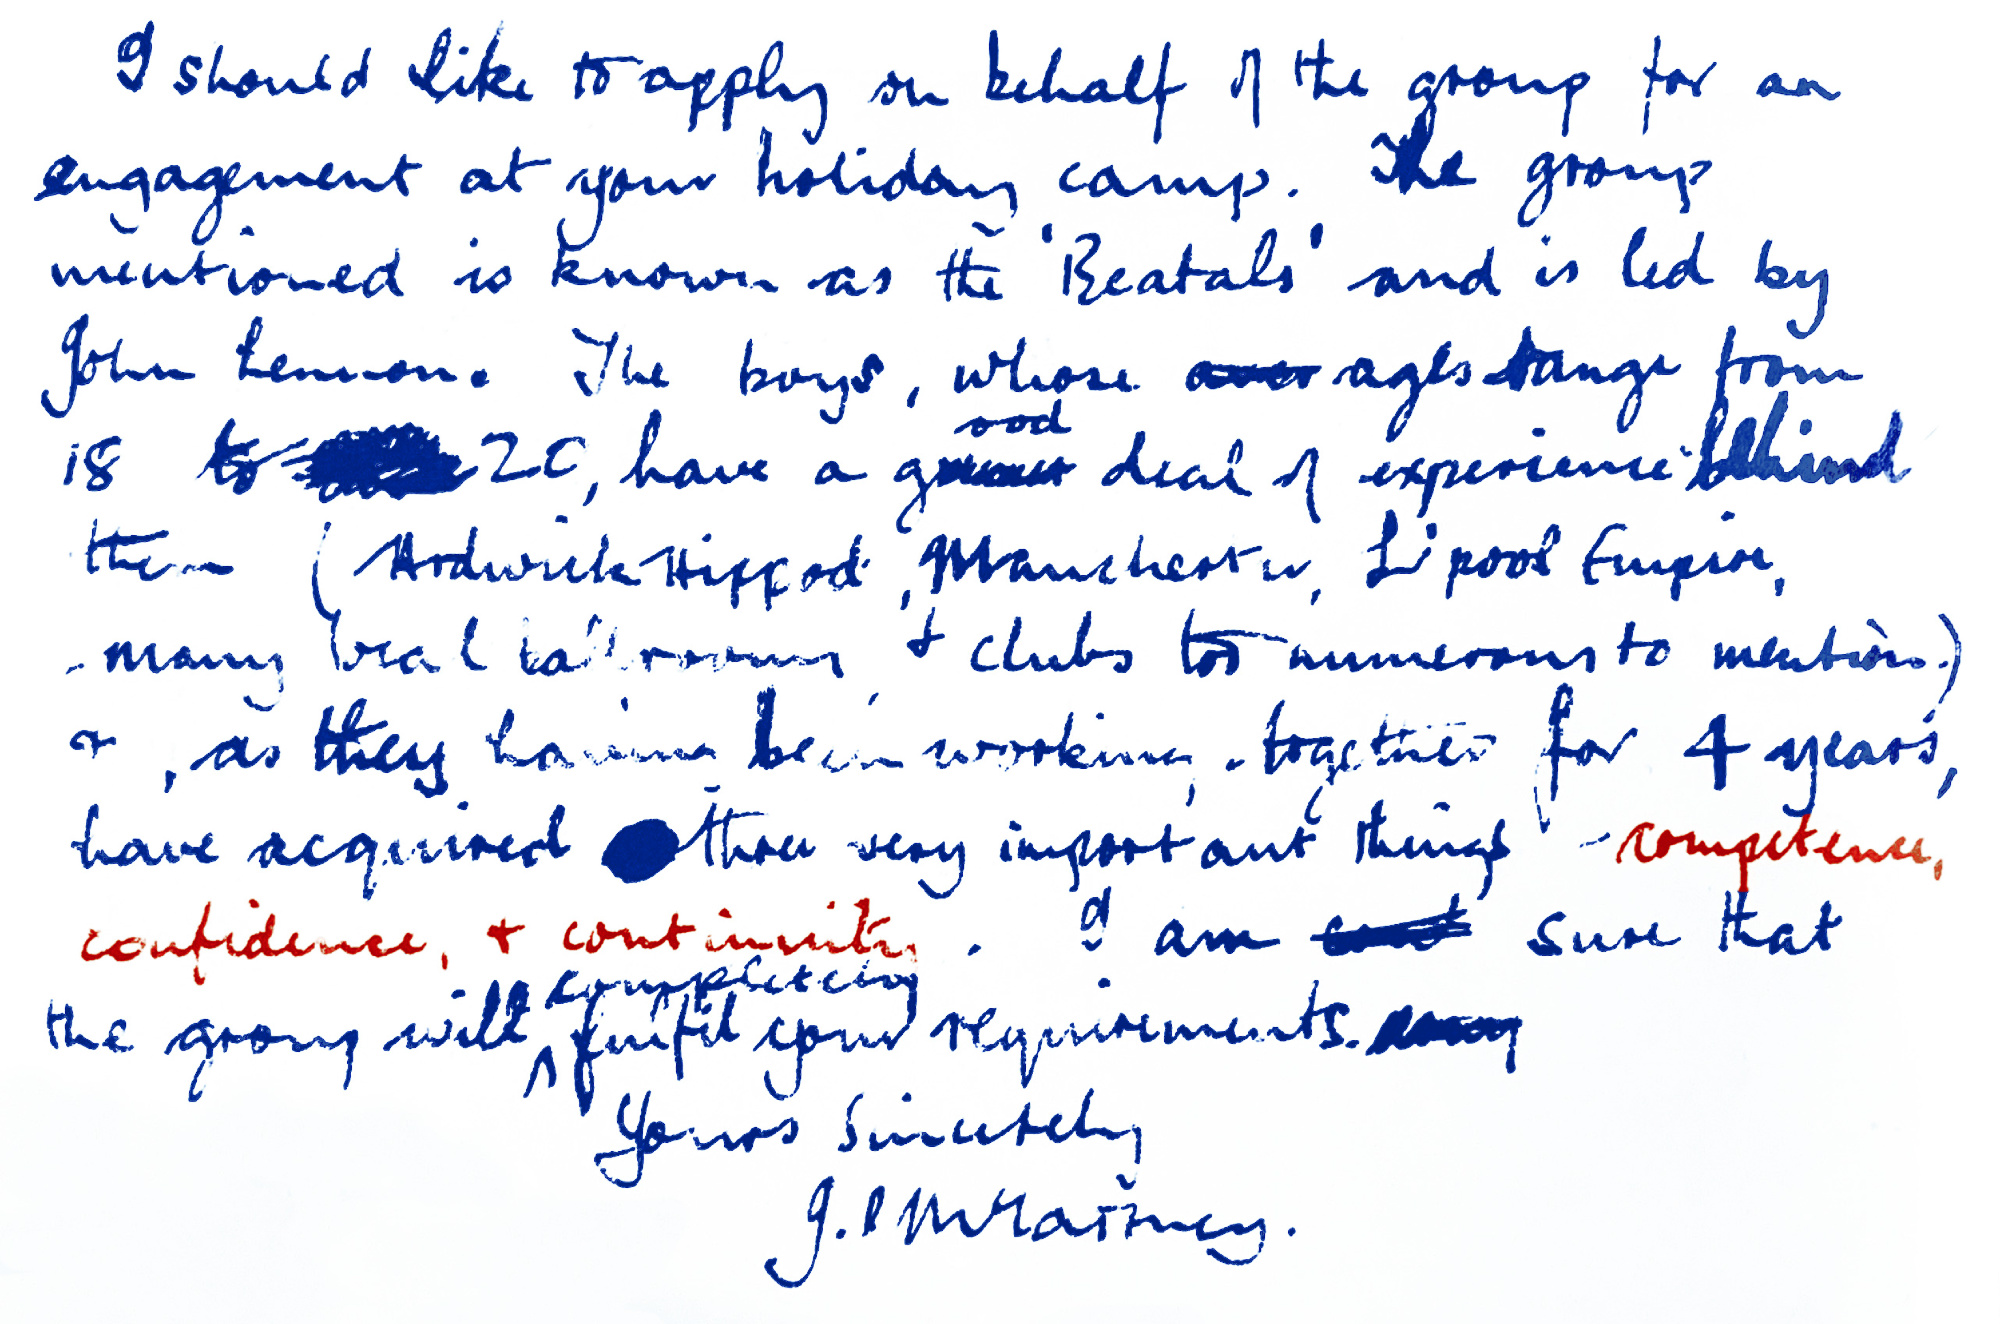 I should like to apply on behalf of the group for an
engagement at your holiday camp. The group
mentioned is known as the 'Beatals' and is led by
John Lennon. The boys, whose ages range from
18 to 20, have a good deal of experience behind
them (Ardwick Hippod, Manchester, L'pool Empire,
many local ballrooms, + clubs too numerous to mention.)
+, as they having been working together for 4 years,
have acquired three very important things - competence,
confidence, + continuity. I am sure that
the group will completely fulfil your requirements.
Yours Sincerely
J. P McCartney.